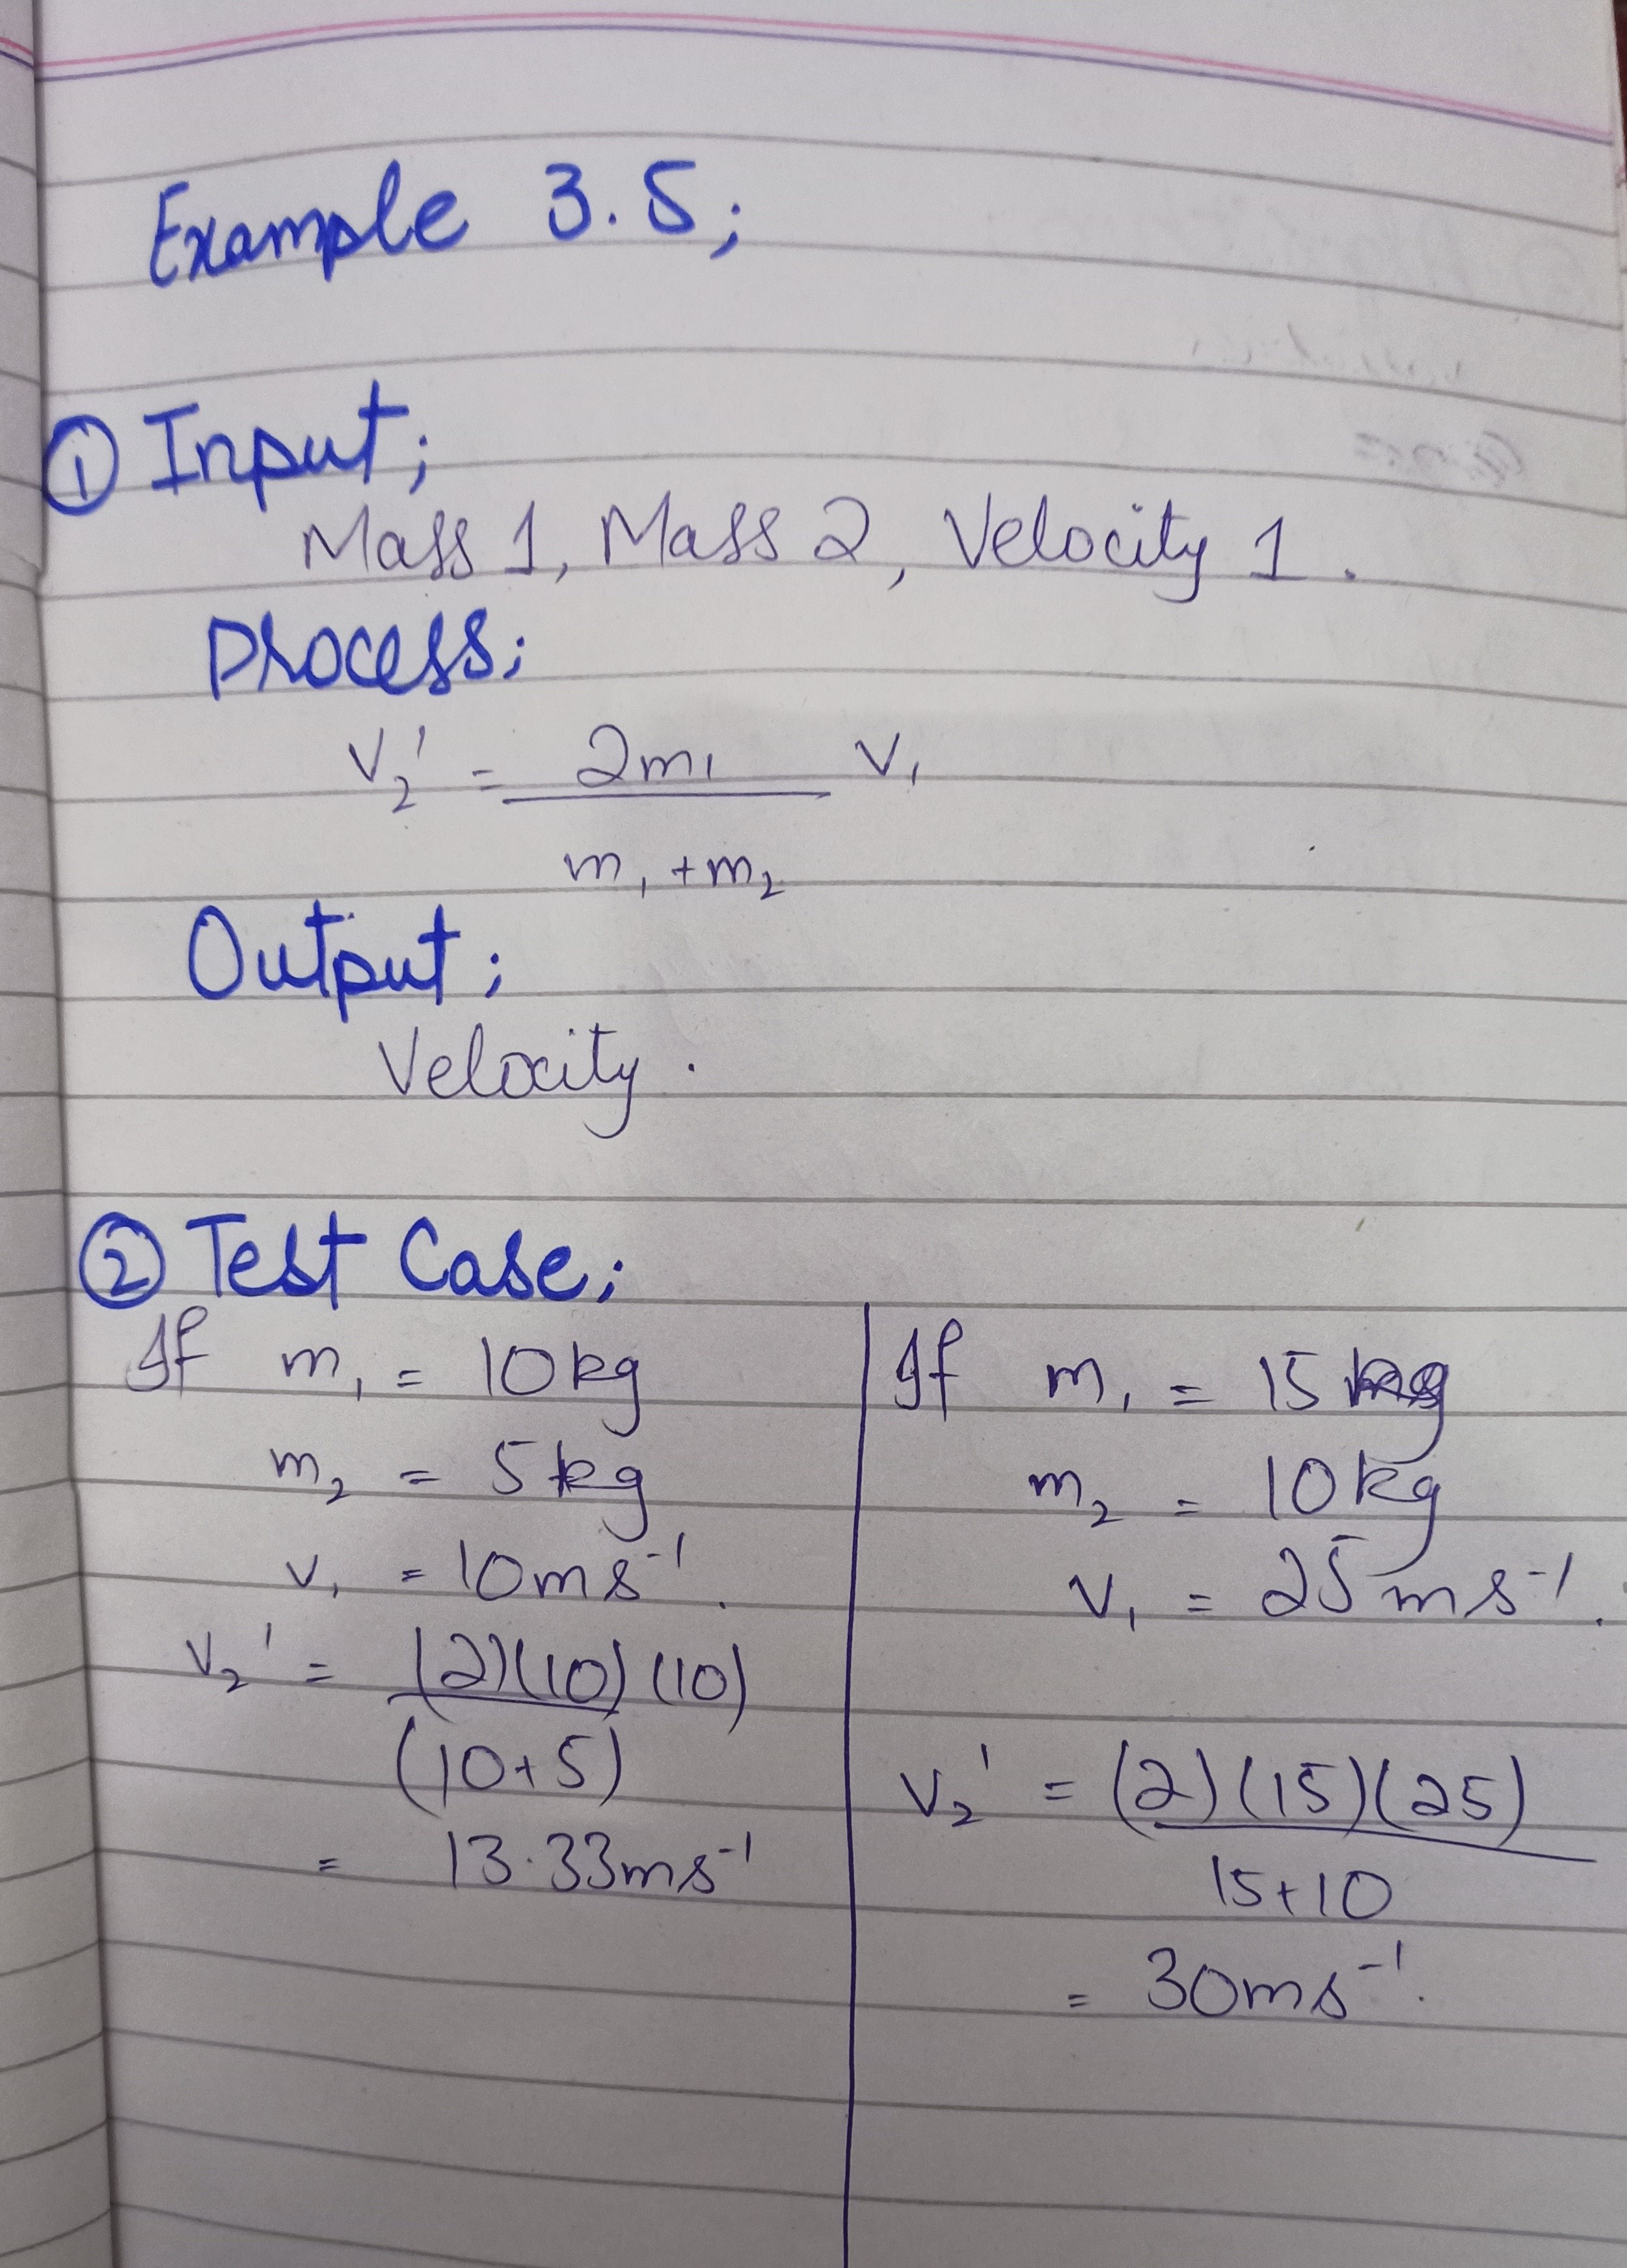 Example 3.5;
① Input;
Mass 1, Mass 2, Velocity 1.
Process;
V₂' = 2m₁ V₁
m₁ + m₂
Output;
Velocity.
② Test Case;
If m₁ = 10kg
m₂ = 5kg
V₁ = 10ms⁻¹.
V₂' = (2)(10) (10)
(10+5)
= 13.33ms⁻¹
If m₁ = 15kg
m₂ = 10kg
V₁ = 25ms⁻¹.
V₂' = (2)(15)(25)
15+10
= 30ms⁻¹.